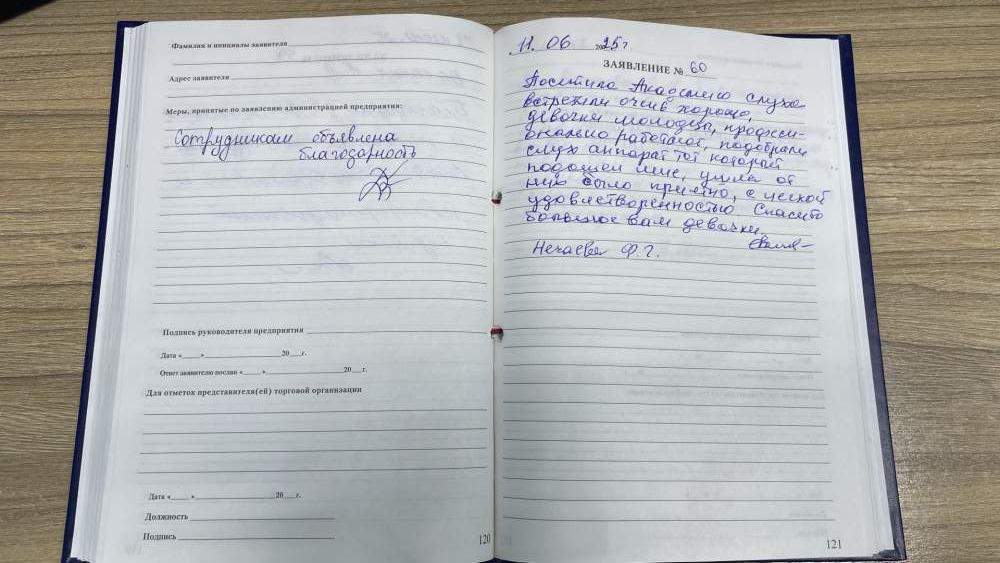 Фамилия и инициалы заявителя
Адрес заявителя
Меры, принятые по заявлению администрацией предприятия:
Сотрудникам объявлена
благодарность
Подпись руководителя предприятия
Дата «___» 20__г.
Ответ заявителю послан «___» 20__г.
Для отметок представителя(ей) торговой организации
Дата «___» 20__г.
Должность
Подпись
120
11. 06 2025г
ЗАЯВЛЕНИЕ № 60
Посетила Академию слуха
встретили очень хорошо,
девочки молодцы, професси-
онально работают, подобрали
слух аппарат тот который
подошел мне, ушла от
них было приятно, с
удовлетворенностью Спасибо
большое вам девочки.
Нечаева Ф. Г.
121